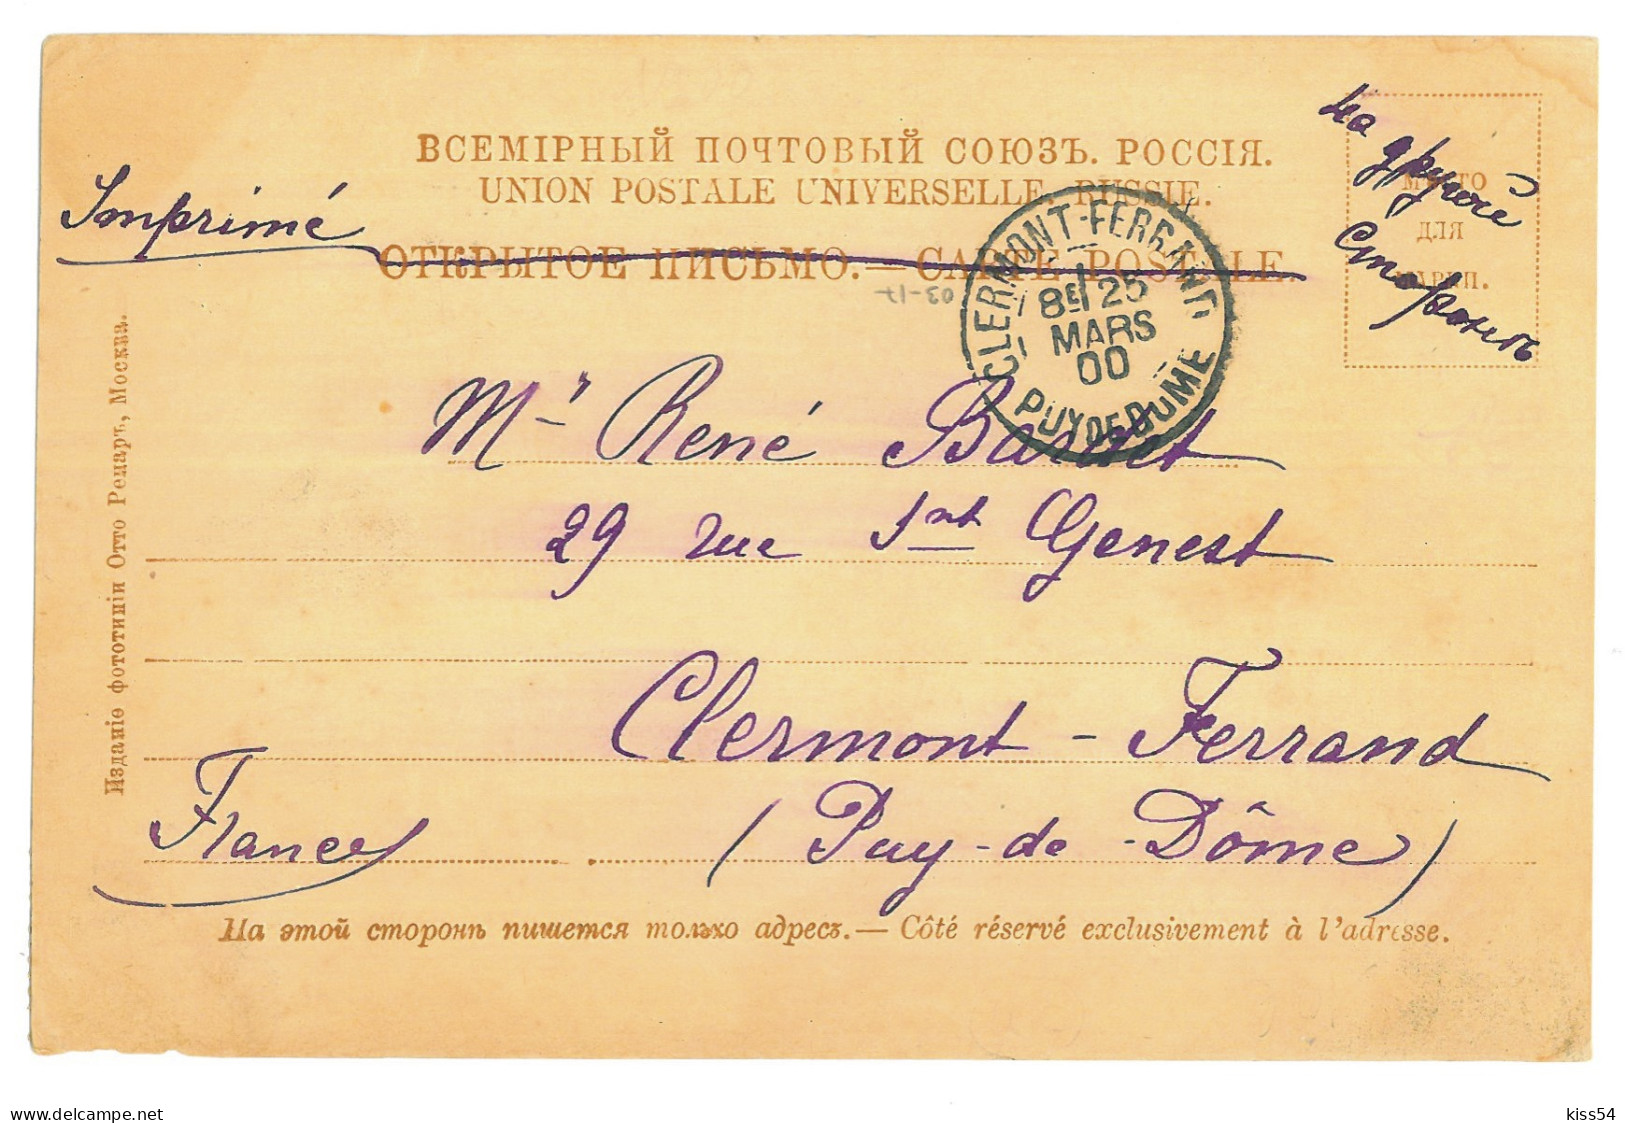 ВСЕМІРНЫЙ ПОЧТОВЫЙ СОЮЗЪ. РОССІЯ.
UNION POSTALE UNIVERSELLE. RUSSIE.
Imprimé
ОТКРЫТОЕ ПИСЬМО.—CARTE POSTALE.
МѢСТО
ДЛЯ
МАРКИ.
На
другой
Сторонѣ
CLERMONT-FERRAND
8E 25
MARS
00
PUY DE DÔME
Mr René
29 rue St Genest
Clermont-Ferrand
France
(Puy-de-Dôme)
На этой сторонѣ пишется только адресъ.—Côté réservé exclusivement à l'adresse.
Изданіе фототипіи Отто Ренаръ, Москва.
delcampe.net
kiss54